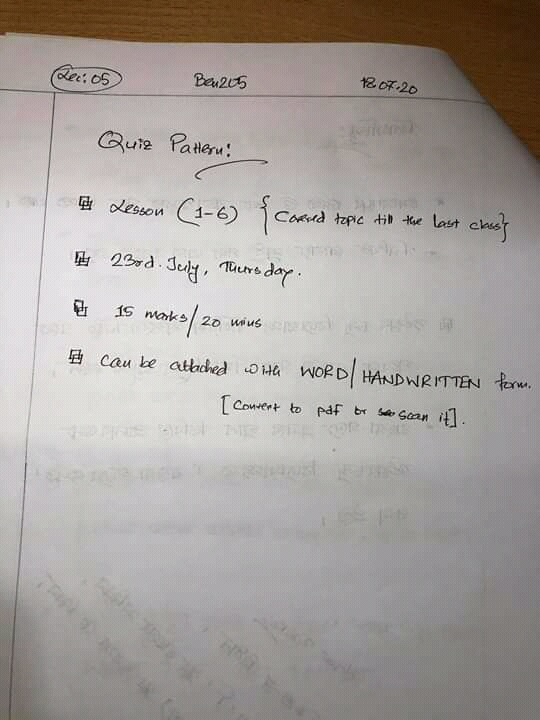 Lec: 05 Ben205 18.07.20
Quiz Pattern:
Lesson (1-6) {Covered topic till the last class}
23rd. July, Thursday.
15 marks/20 mins
Can be attached with WORD/HANDWRITTEN form.
[Convert to pdf or scan it].